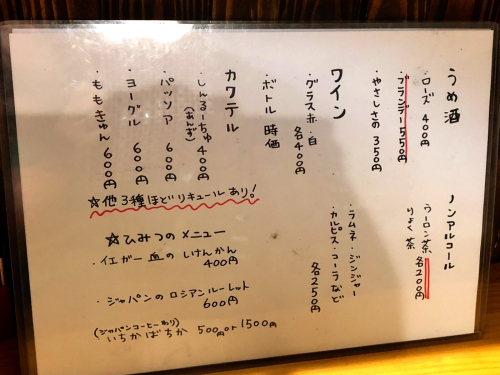 うめ酒
・ローズ 400円
・ブランデー 550円
・やさしさの 350円
ワイン
・グラス赤・白 各400円
・ボトル 時価
カクテル
・しんるーちゅ 400円
(あんず)
・パッソア 600円
・ヨーグル 600円
・ももきゅん 600円
☆他3種ほどリキュールあり!
ノンアルコール
・ウーロン茶 各200円
りょく茶
・ラムネ・ジンジャー
・カルピス・コーラなど
各250円
☆ひみつのメニュー
・イエガー血のしけんかん
400円
・ジャパンのロシアンルーレット
600円
(ジャパンコーヒーわり)
いちかばちか 500円or1500円